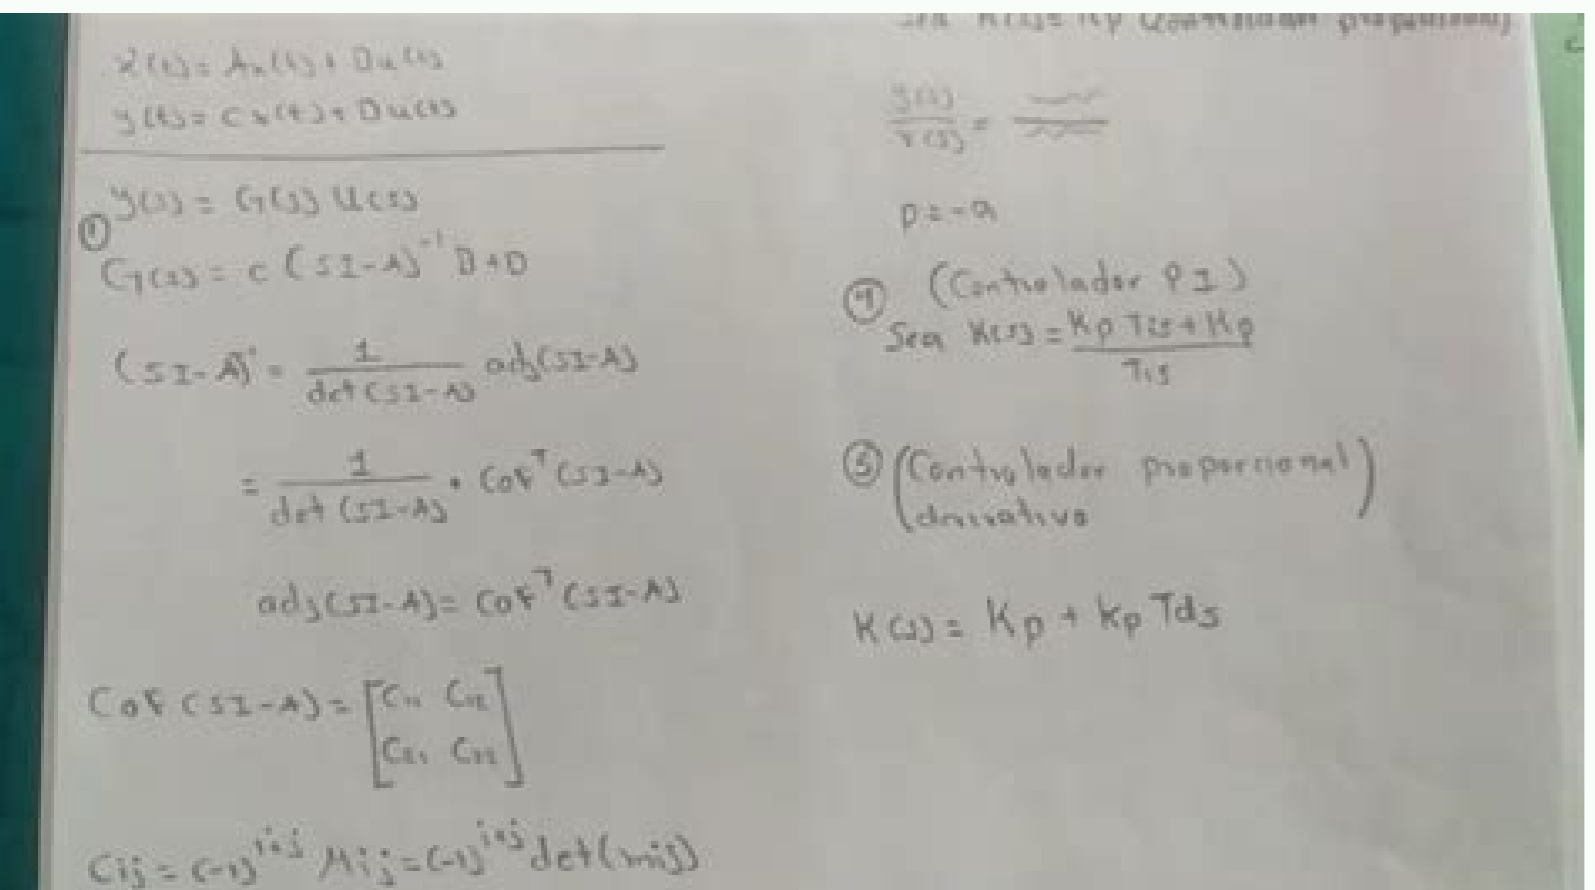 ẋ(t) = Ax(t) + Bu(t)
y(t) = Cx(t) + Du(t)
y(s) = G(s) U(s)
① G(s) = C (sI-A)⁻¹ B + D
(sI-A)⁻¹ = 1 / det(sI-A) adj(sI-A)
= 1 / det(sI-A) · Cofᵀ(sI-A)
adj(sI-A) = Cofᵀ(sI-A)
Cof(sI-A) = [C₁₁ C₁₂
C₂₁ C₂₂]
Cij = (-1)^(i+j) Mij = (-1)^(i+j) det(mij)
Sea K(s) = Kp (Controlador proporcional)
y(s) / r(s) =
p = -a
④ (Controlador PI)
Sea K(s) = (Kp Tis + Kp) / Tis
⑤ (Controlador proporcional
derivativo)
K(s) = Kp + Kp Tds